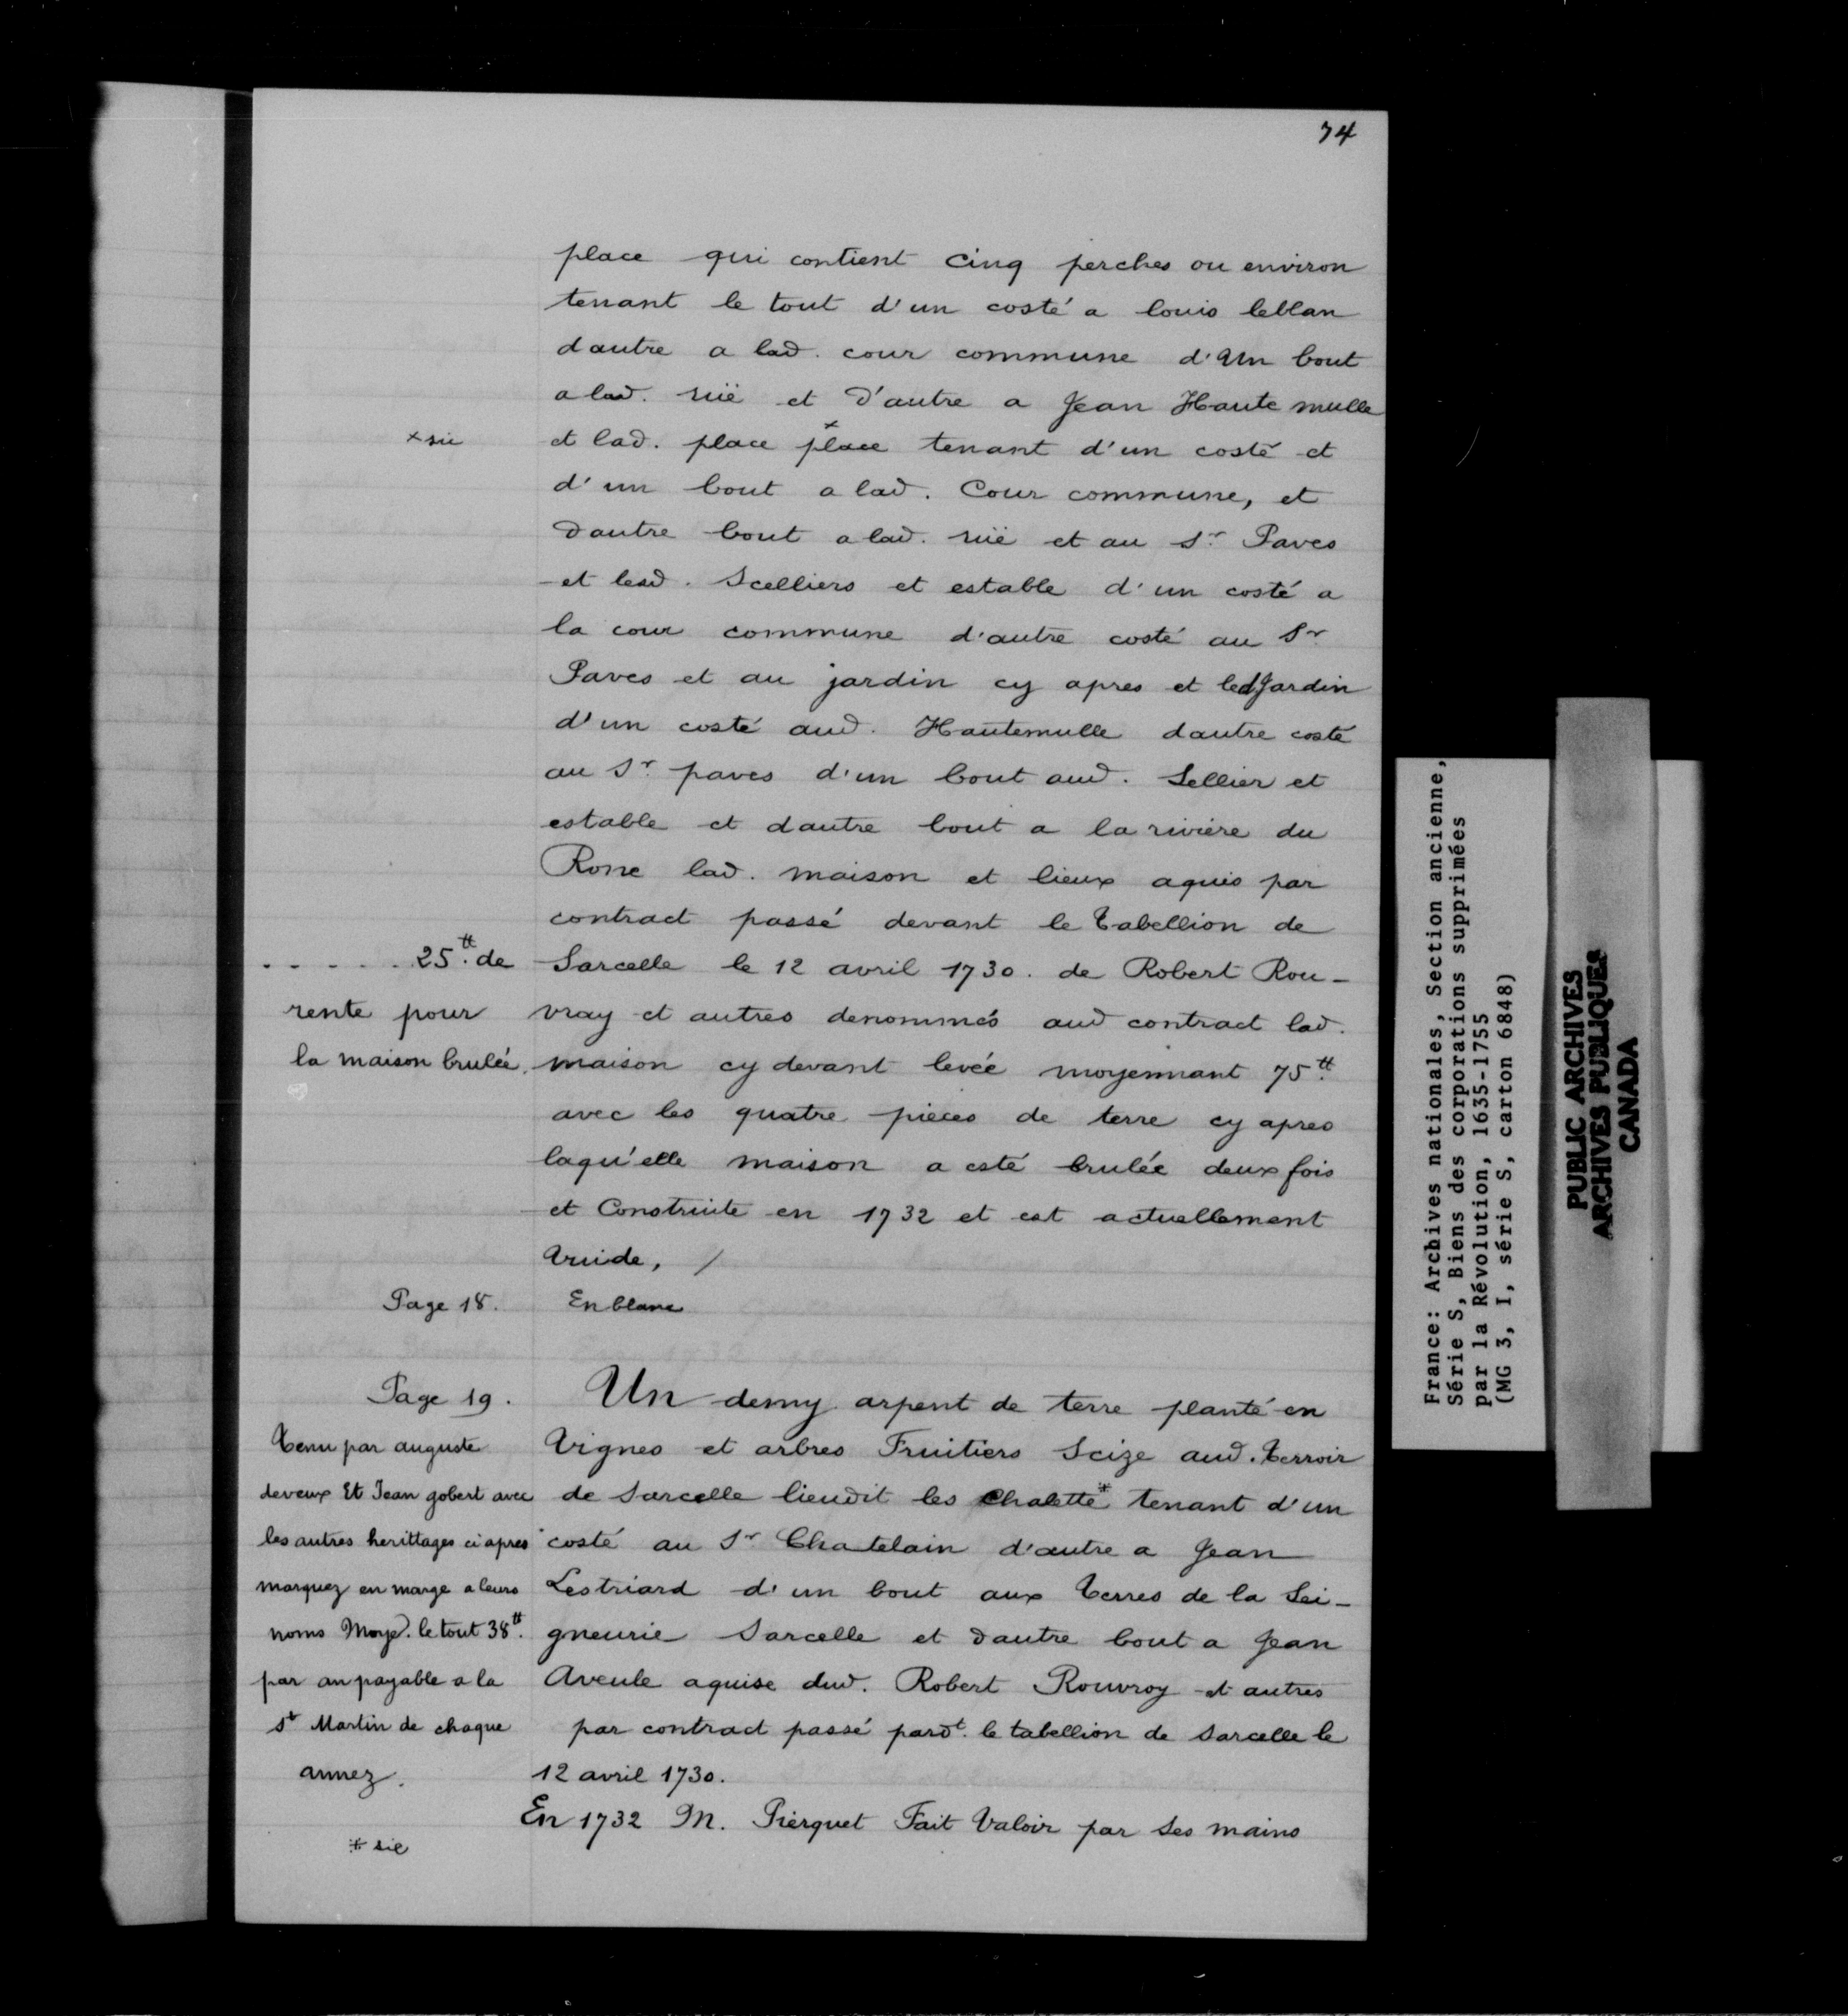 74
place qui contient Cinq perches ou environ
tenant le tout d'un costé a louis leblan
dautre a lad. cour commune d'Un bout
a lad. rüe et d'autre a Jean Haute mulle
× sic
et lad. place place × tenant d'un costé et
d'un bout a lad. Cour commune, et
dautre bout a lad. rüe et au Sr Paves
et lesd. Scelliers et estable d'un costé a
la cour commune d'autre costé au Sr
Paves et au jardin cy apres et led Jardin
d'un costé aud. Hautemulle dautre costé
au Sr. paves d'un bout aud. Sellier et
estable et dautre bout a la rivière du
Rone lad. maison et lieux aquis par
contract passé devant le Tabellion de
Sarcelle le 12 avril 1730. de Robert Rou-
vray et autres denommés aud contract lad.
maison cy devant levée moyennant 75.tt
avec les quatre pièces de terre cy apres
laqu'elle maison a esté brulée deux fois
et Construite en 1732 et est actuellement
Vuide, /
. . . . . 25.tt de
rente pour
la maison brulée.
Page 18.
En blanc
Page 19.
Un demy arpent de terre planté en
Vignes et arbres Fruitiers Scize aud. Terroir
de Sarcelle lieudit les Chalette* tenant d'un
costé au Sr Chatelain d'autre a Jean
Lestriard d'un bout aux Terres de la Sei-
gneurie Sarcelle et dautre bout a Jean
Aveule aquise dud. Robert Rouvroy et autres
par contract passé pardt. le tabellion de Sarcelle le
12 avril 1730.
En 1732 M. Pierquet Fait Valoir par ses mains
Tenu par auguste
deveux Et Jean gobert avec
les autres herittages ci apres
marquez en marge a leurs
noms Moyed. le tout 38tt.
par an payable a la
St Martin de chaque
annez.
* sic
France: Archives nationales, Section ancienne,
Série S, Biens des corporations supprimées
par la Révolution, 1635-1755
(MG 3, I, série S, carton 6848)
PUBLIC ARCHIVES
ARCHIVES PUBLIQUES
CANADA